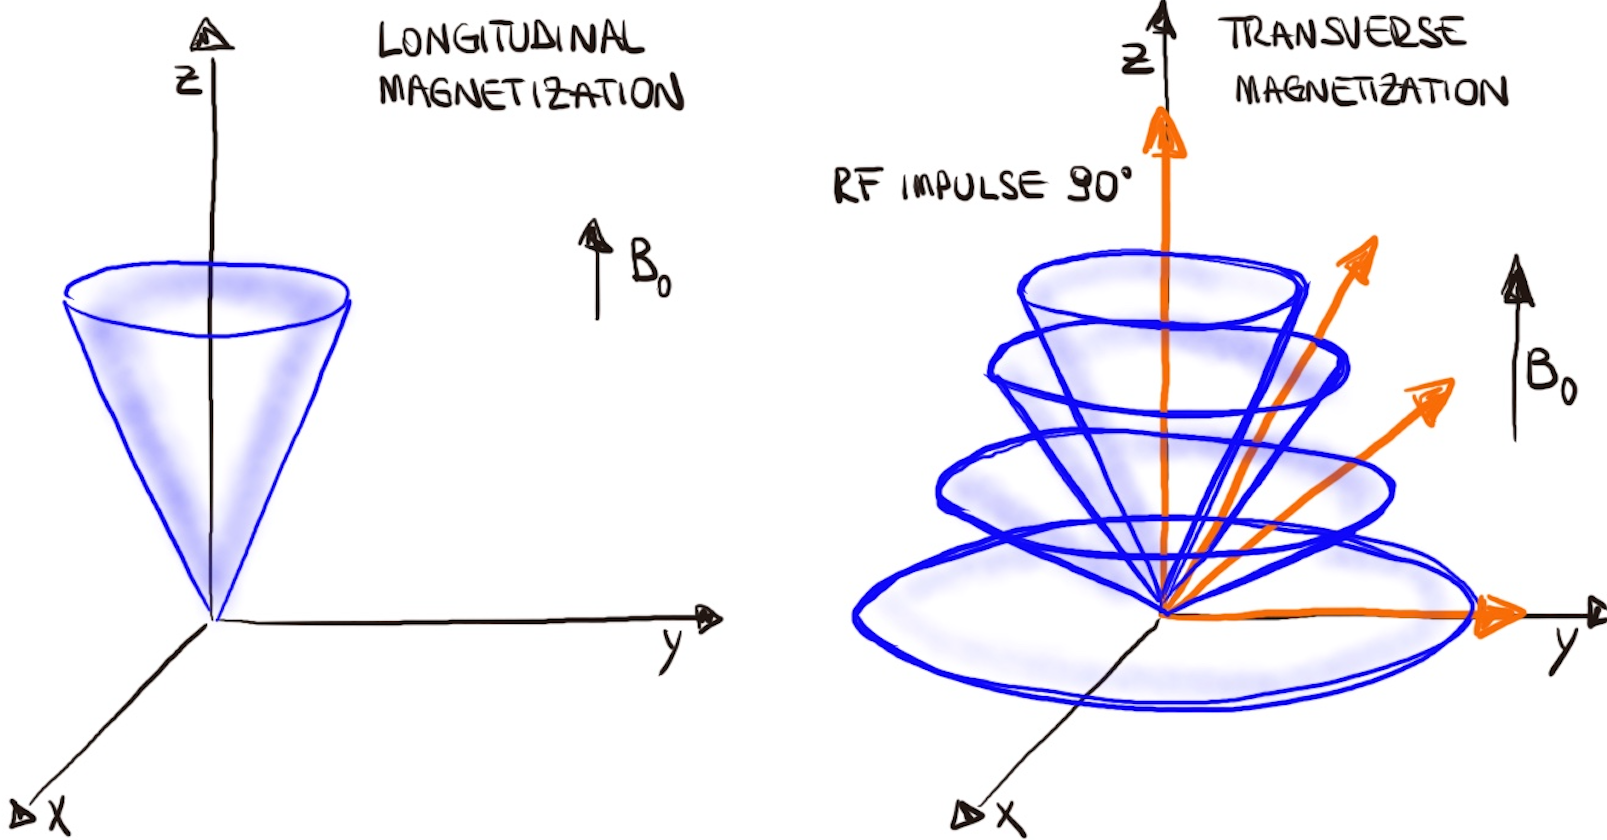 Z
LONGITUDINAL
MAGNETIZATION
B₀
Y
X
Z
TRANSVERSE
MAGNETIZATION
RF IMPULSE 90°
B₀
Y
X